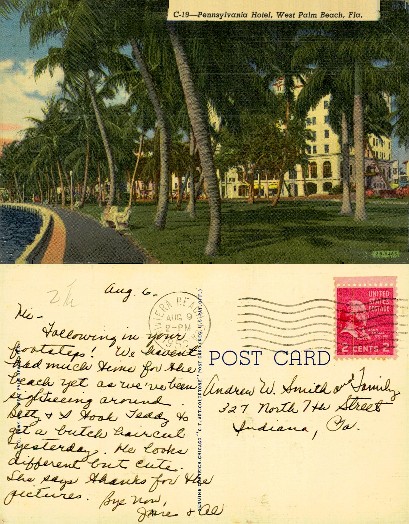 C-19—Pennsylvania Hotel, West Palm Beach, Fla.
Aug. 6.
Hi-
Following in your
footsteps! We haven't
had much time for the
beach yet as we've been
sightseeing around
Betty & I took Teddy to
get a butch haircut
yesterday. He looks
different but cute.
She says thanks for the
pictures. Bye now,
& Al
AUG 9
PM
POST CARD
UNITED STATES
POSTAGE
2 CENTS 2
Andrew W. Smith & Family
327 North 7th Street
Indiana, Pa.